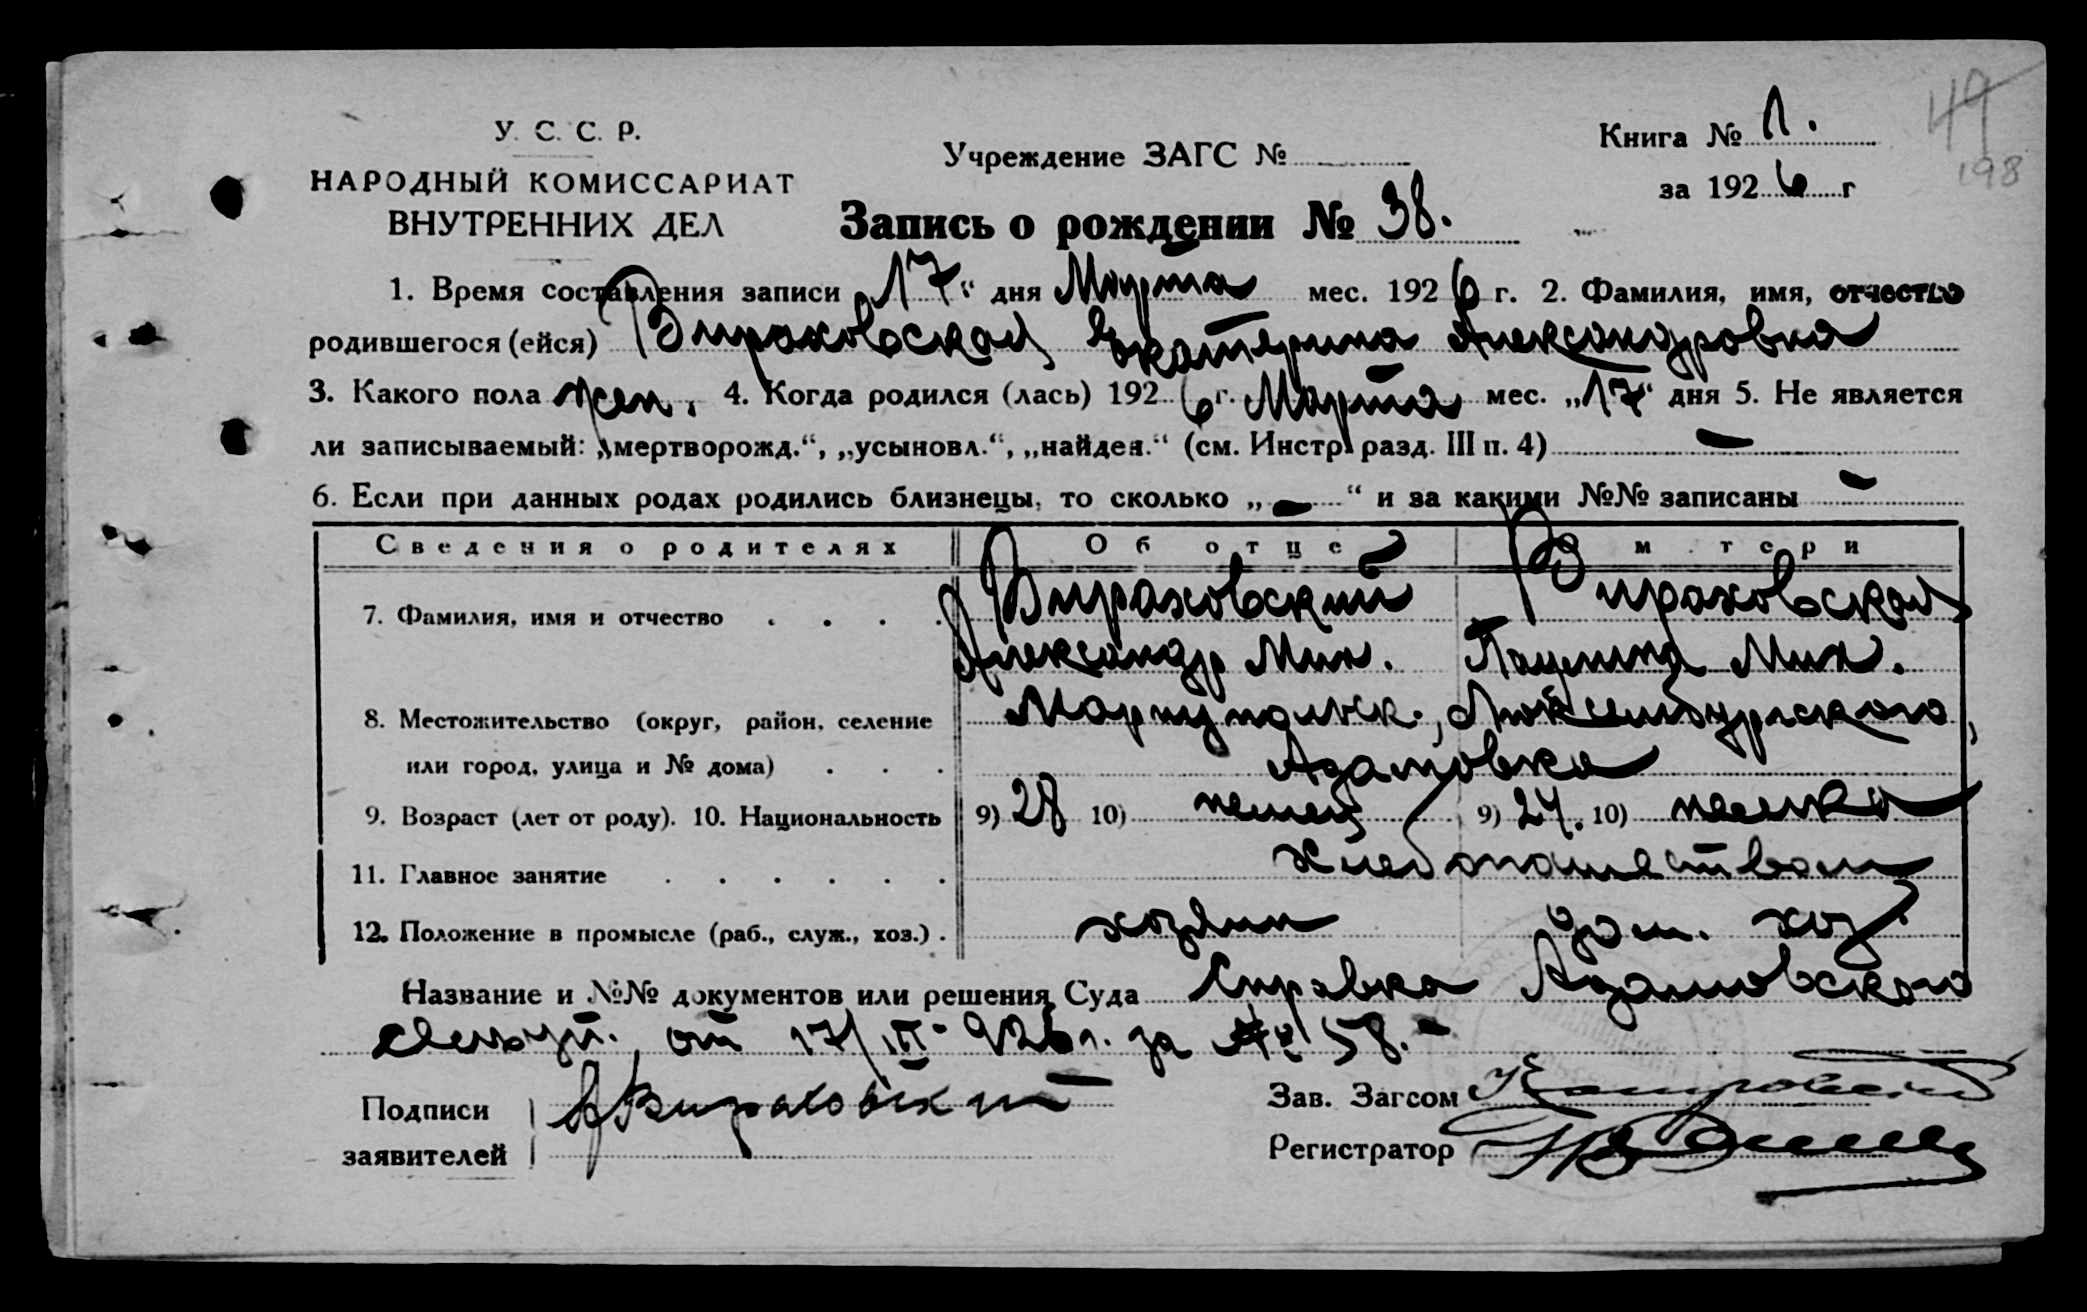 У. С. С. Р.
НАРОДНЫЙ КОМИССАРИАТ
ВНУТРЕННИХ ДЕЛ
Учреждение ЗАГС №
Книга № 1.
за 1926 г
49
198
Запись о рождении № 38.
1. Время составления записи „17“ дня Марта мес. 1926 г. 2. Фамилия, имя, отчество
родившегося (ейся) Вираховская Екатерина Александровна
3. Какого пола жен. 4. Когда родился (лась) 1926 г. Марта мес. „17“ дня 5. Не является
ли записываемый: „мертворожд.“, „усыновл.“, „найден.“ (см. Инстр. разд. III п. 4) —
6. Если при данных родах родились близнецы, то сколько „ — “ и за какими №№ записаны —
Сведения о родителях Об отце О матери
7. Фамилия, имя и отчество . . . . Вираховский Вираховская
Александр Мих. Паулина Мих.
8. Местожительство (округ, район, селение Мариупольск., Люксембургского,
или город, улица и № дома) . . . Адамовка
9. Возраст (лет от роду). 10. Национальность 9) 28 10) немец 9) 24. 10) немка
11. Главное занятие . . . . . . Хлебопашеством
12. Положение в промысле (раб., служ., хоз.) . хозяин дом. хоз.
Название и №№ документов или решения Суда Справка Адамовского
от 17/III-926 г. за № 58.-
Подписи АВираховский Зав. Загсом
заявителей Регистратор